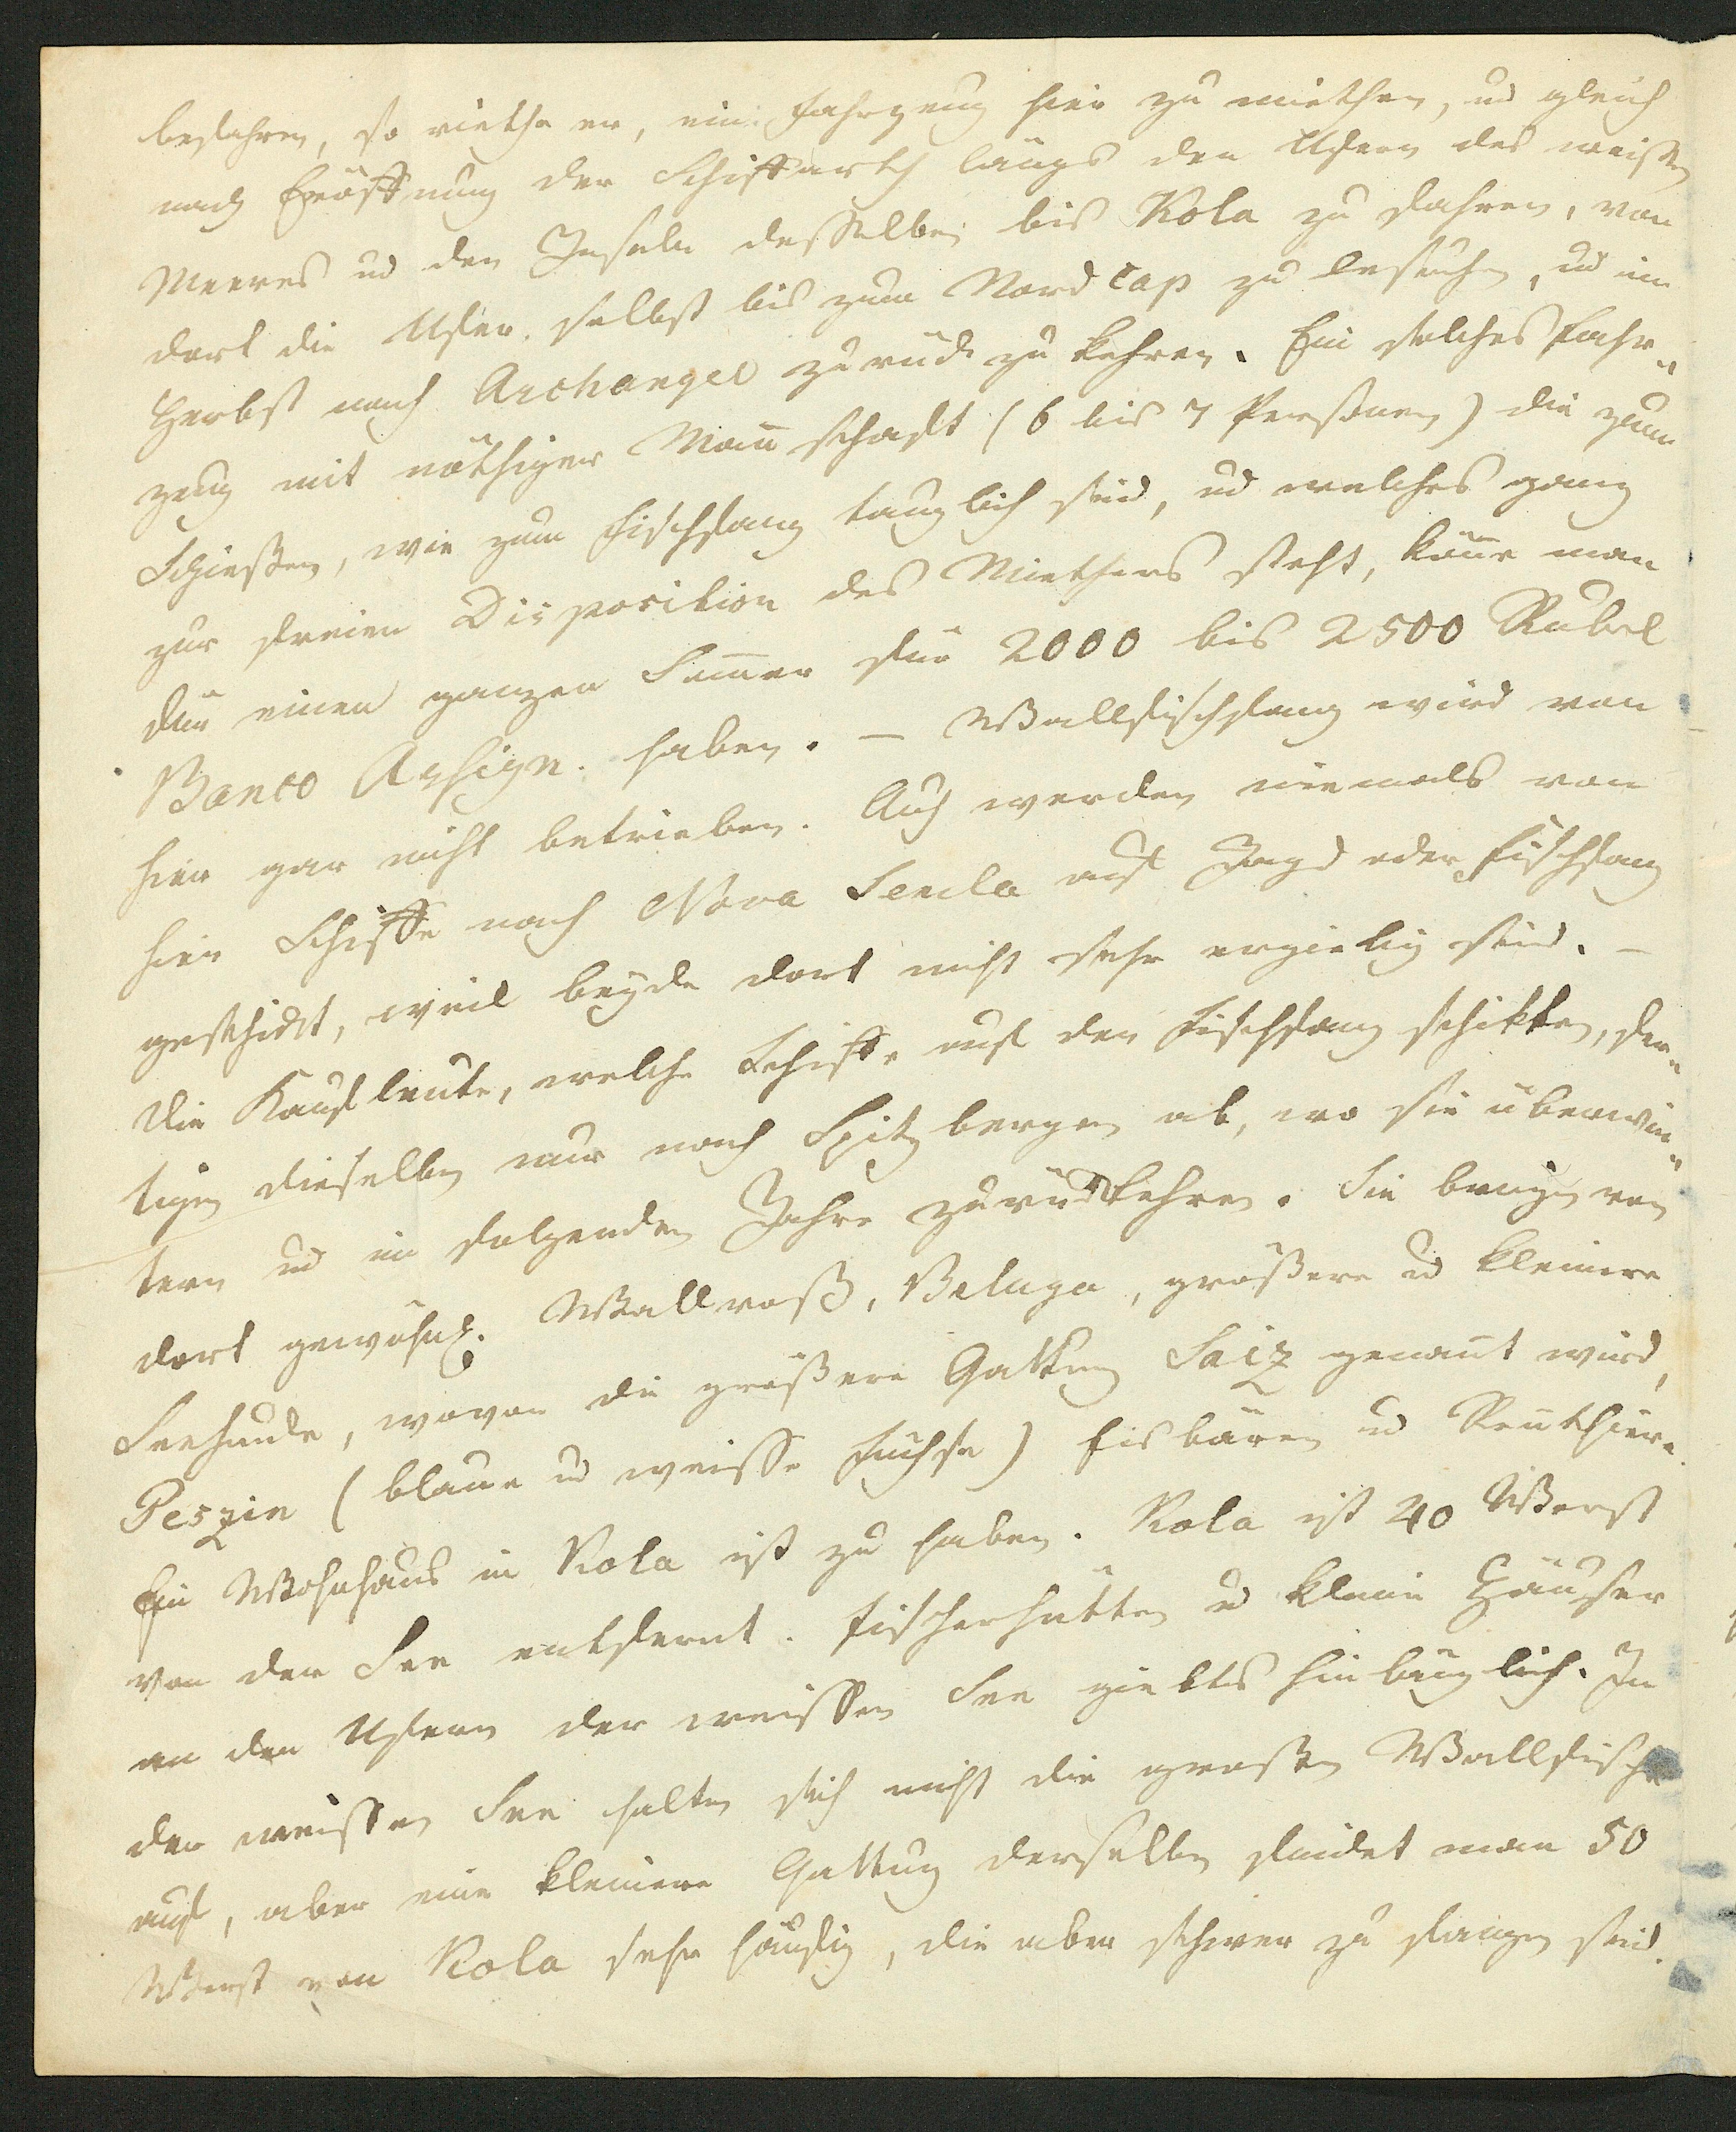 befahren, so riethe er, ein Fahrzeug hier zu miethen, ud gleich
nach Eröffnung der Schiffarth längs den Ufern des weissen
Meeres ud den Inseln desselben bis Kola zu fahren, von
dort die Ufer selbst bis zum Nord Cap zu besuchen, ud im
Herbst nach Archangel zurück zu kehren. Ein solches Fahr-
zeug mit nöthiger Man̄schaft (6 bis 7 Personen) die zum
Schießen, wie zum Fischfang tauglich sind, ud welches ganz
zur freien Disposition des Miethers steht, kön̄e man
für einen ganzen Som̄er für 2000 bis 2500 Rubel
Banco Assign. haben. – Wallfischfang wird von
hier gar nicht betrieben. Auch werden niemals von
hier Schiffe nach Nova Semla auf Jagd oder Fischfang
geschickt, weil beyde dort nicht sehr ergiebig sind. –
Die Kaufleute, welche Schiffe auf den Fischfang schikken, fer-
tigen dieselben nur nach Spitzbergen ab, wo sie überwin-
tern ud im folgenden Jahre zurückkehren. Sie bringen von
dort gewöhnl. Wallroß, Beluga, größere ud kleinere
Seehunde, wovon die größere Gattung Saiz genan̄t wird,
Peszin (blaue ud weisse Füchse) Eisbären ud Ren̄thiere.
Ein Wohnhaus in Kola ist zu haben. Kola ist 40 Werst
von der See entfernt. Fischerhütten ud kleine Häuser
an den Ufern der weissen See giebts hinlänglich. In
der weissen See halten sich nicht die großen Wallfische
auf, aber eine kleinere Gattung derselben findet man 50
Werst von Kola sehr häufig, die aber schwer zu fangen sind.